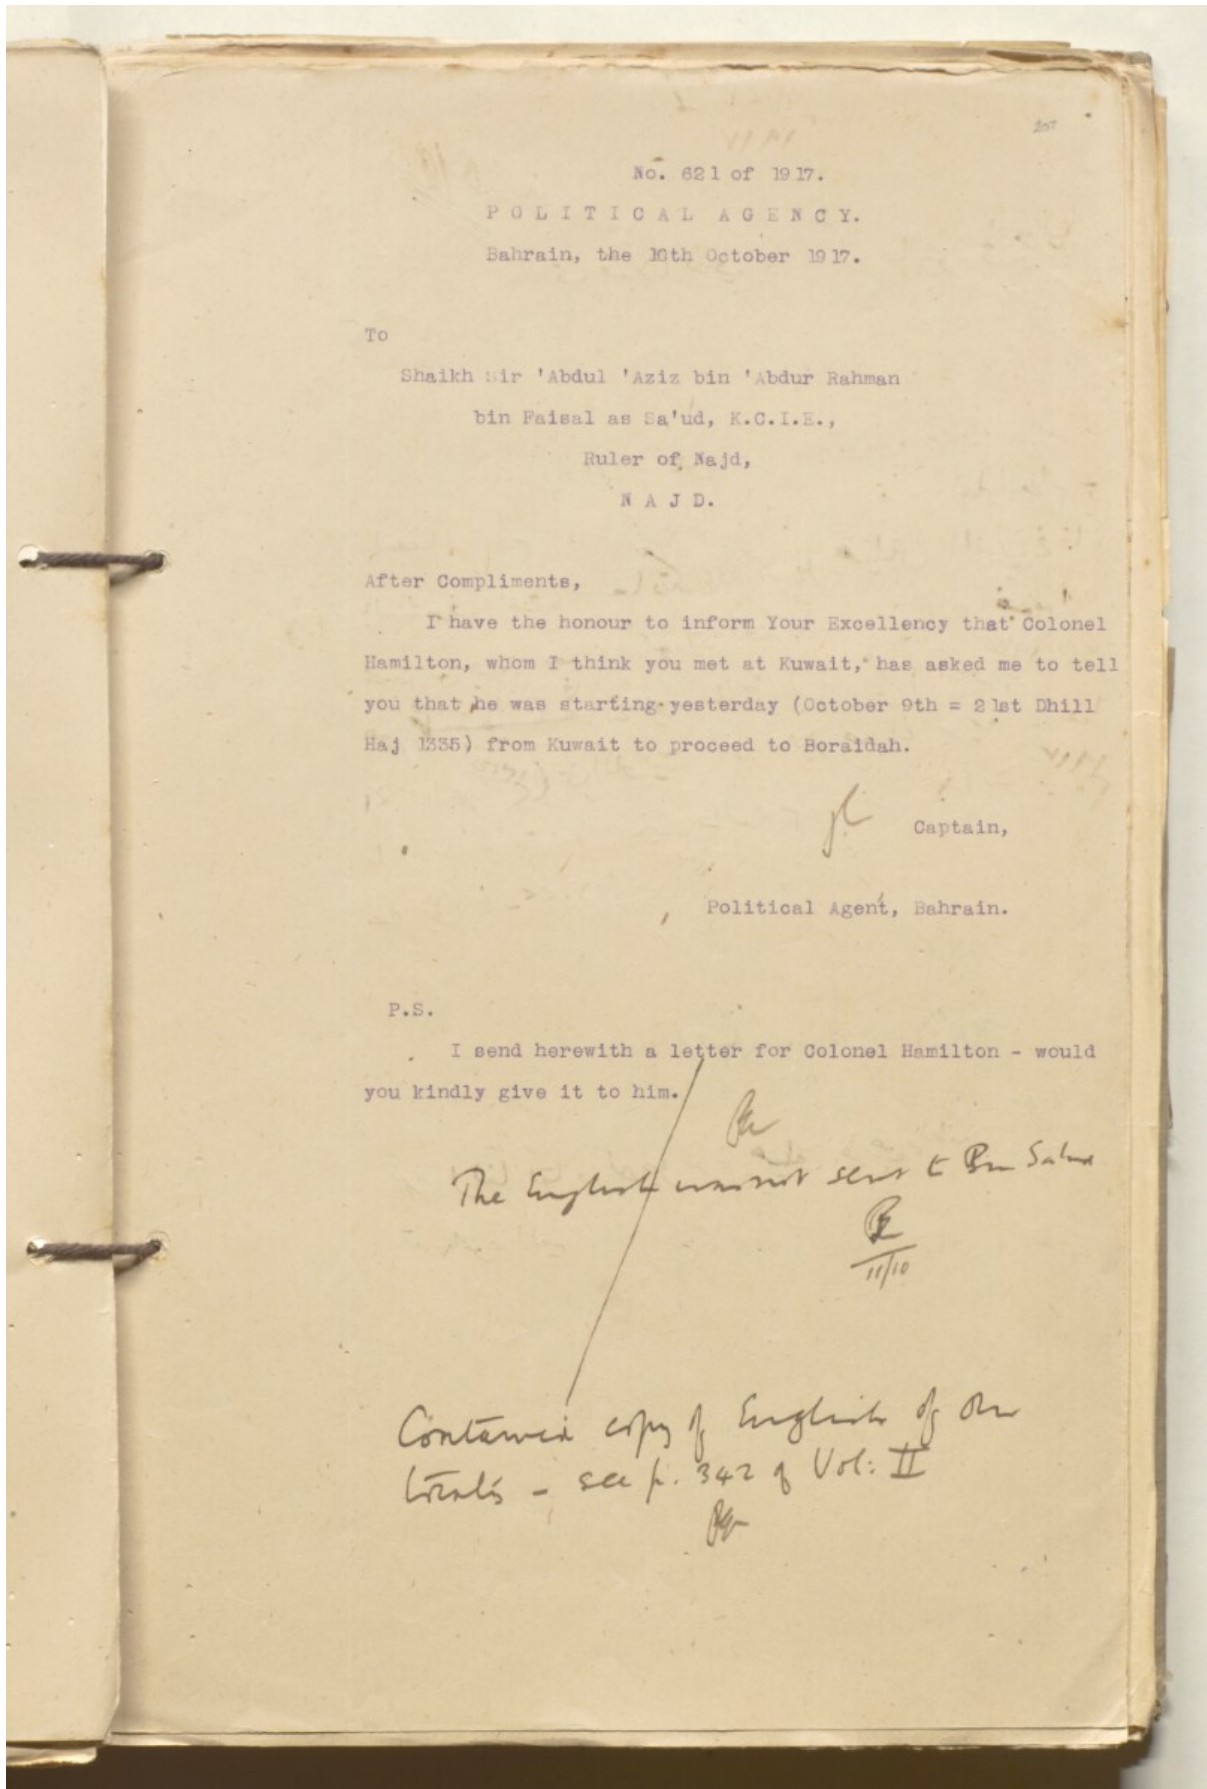 No. 621 of 1917.
POLITICAL AGENCY.
Bahrain, the 10th October 1917.
To
Shaikh Sir 'Abdul 'Aziz bin 'Abdur Rahman
bin Faisal as Sa'ud, K.C.I.E.,
Ruler of Najd,
NAJD.
After Compliments,
I have the honour to inform Your Excellency that Colonel
Hamilton, whom I think you met at Kuwait, has asked me to tell
you that he was starting yesterday (October 9th = 21st Dhill
Haj 1335) from Kuwait to proceed to Boraidah.
Captain,
Political Agent, Bahrain.
P.S.
I send herewith a letter for Colonel Hamilton - would
you kindly give it to him.
The English was not sent to Bin Saud
11/10
Contained copy of English of the
- see p. 342 of Vol: II